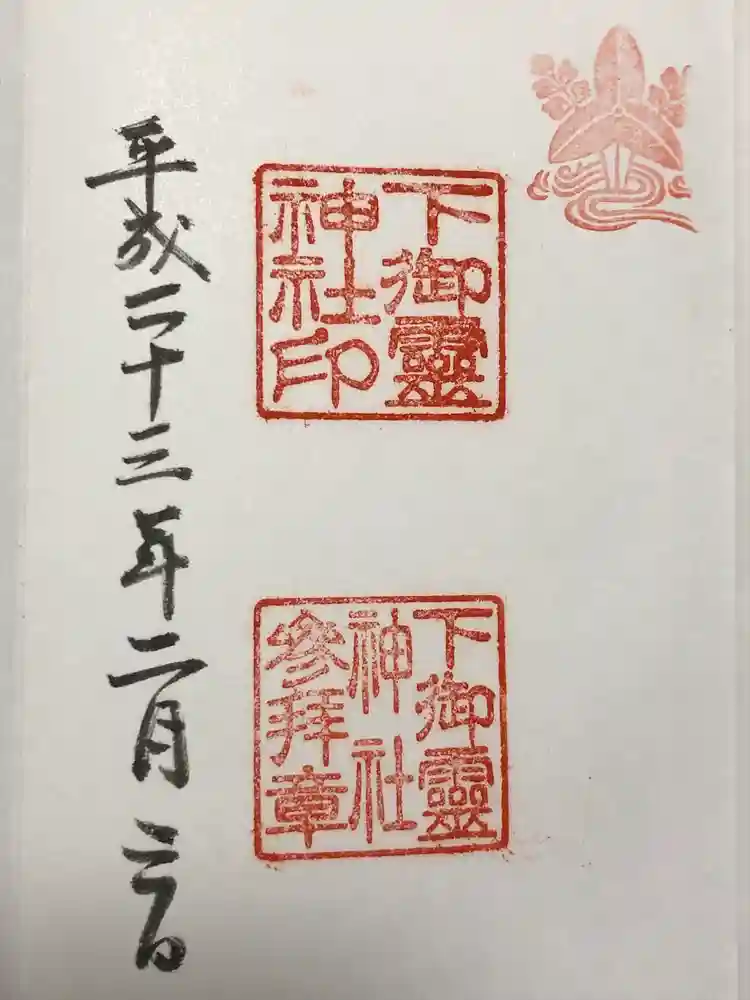 下御靈
神社印
下御靈
神社
參拜章
平成二十三年二月 日